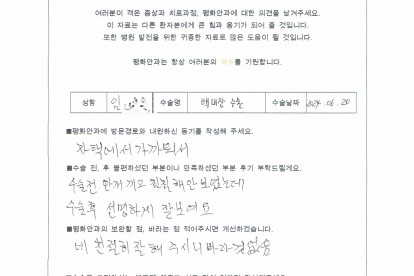 여러분이 겪은 증상과 치료과정, 평화안과에 대한 의견을 남겨주세요.
이 자료는 다른 환자분에게 큰 힘과 용기가 되어 줄 것입니다.
또한 병원 발전을 위한 귀중한 자료로 많은 도움이 될 것입니다.
평화안과는 항상 여러분의 쾌유를 기원합니다.
성함 임 수술명 백내장 수술 수술날짜 2024. 06. 20
■평화안과에 방문경로와 내원하신 동기를 작성해 주세요.
자택에서 가까워서
■수술 전, 후 불편하셨던 부분이나 만족하셨던 부분 후기 부탁드릴게요.
수술전 안개 끼고 침침해 안보였는데
수술후 선명하게 잘보여요
■평화안과의 보완할 점, 바라는 점 적어주시면 개선하겠습니다.
네 친절히 잘해 주시니 바라는 것 없음